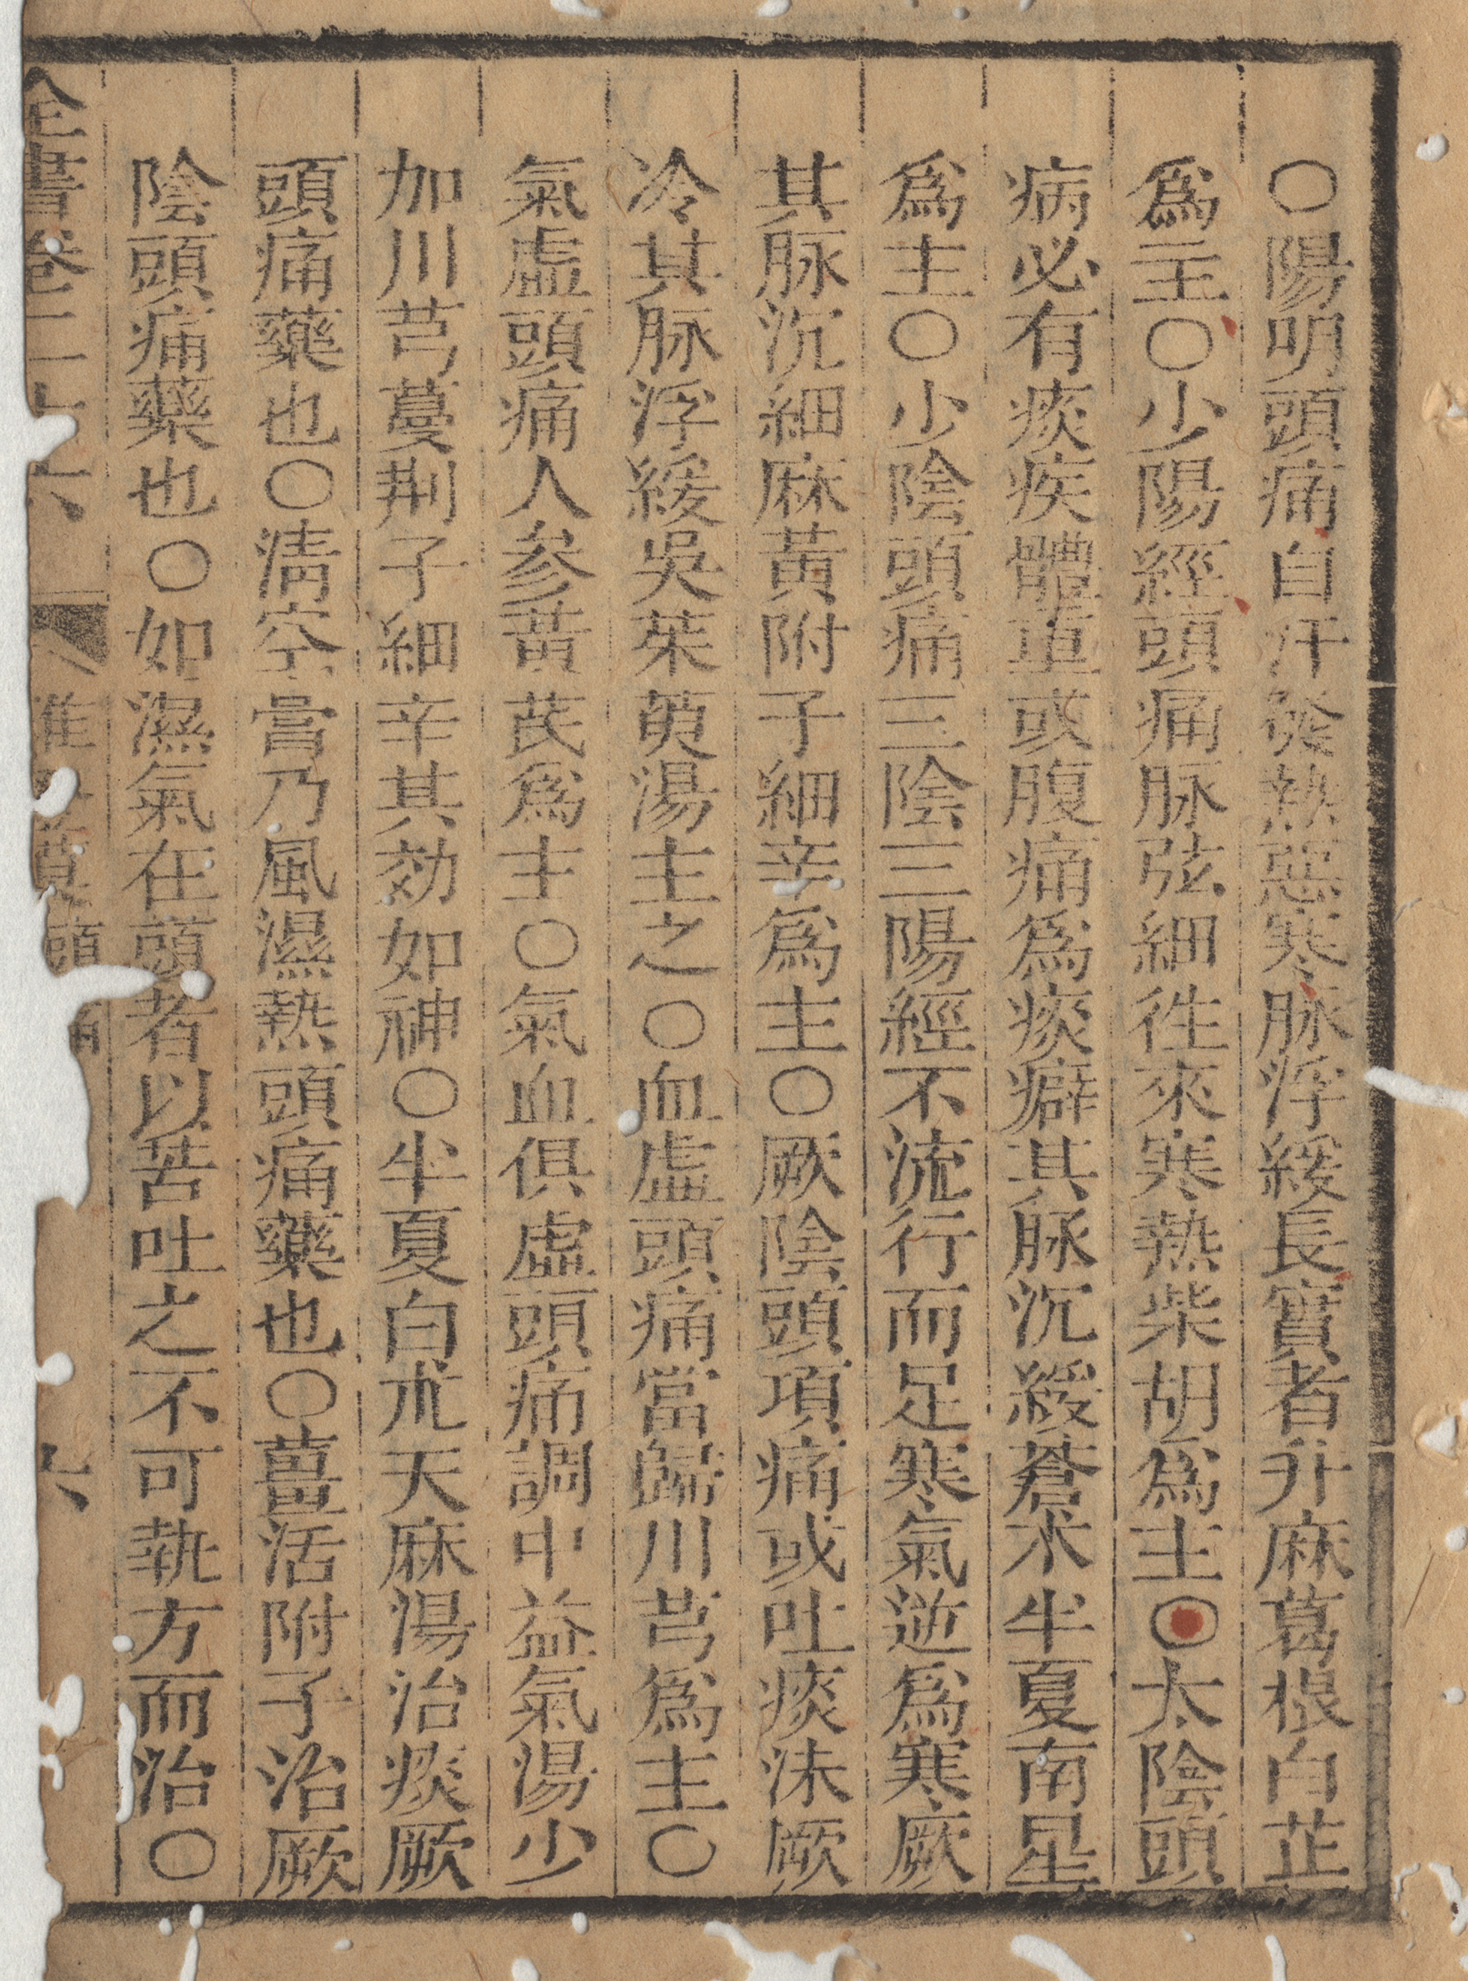 〇陽明頭痛自汗發熱惡寒脉浮緩長實者升麻葛根白芷
爲主〇少陽經頭痛脉弦細徃來寒熱柴胡爲主〇太陰頭
病必有痰疾體重或腹痛爲痰癖其脉沉緩蒼术半夏南星
爲主〇少陰頭痛三陰三陽經不流行而足寒氣逆爲寒厥
其脉沉細麻黃附子細辛爲主〇厥陰頭項痛或吐痰沫厥
冷其脉浮緩吳茱萸湯主之〇血虛頭痛當歸川芎爲主〇
氣虛頭痛人參黃芪爲主〇氣血俱虛頭痛調中益氣湯少
加川芎蔓荆子細辛其効如神〇半夏白朮天麻湯治痰厥
頭痛藥也〇淸空膏乃風濕熱頭痛藥也〇薑活附子治厥
陰頭痛藥也〇如濕氣在頭者以苦吐之不可執方而治〇
全書卷二十六 頭 六